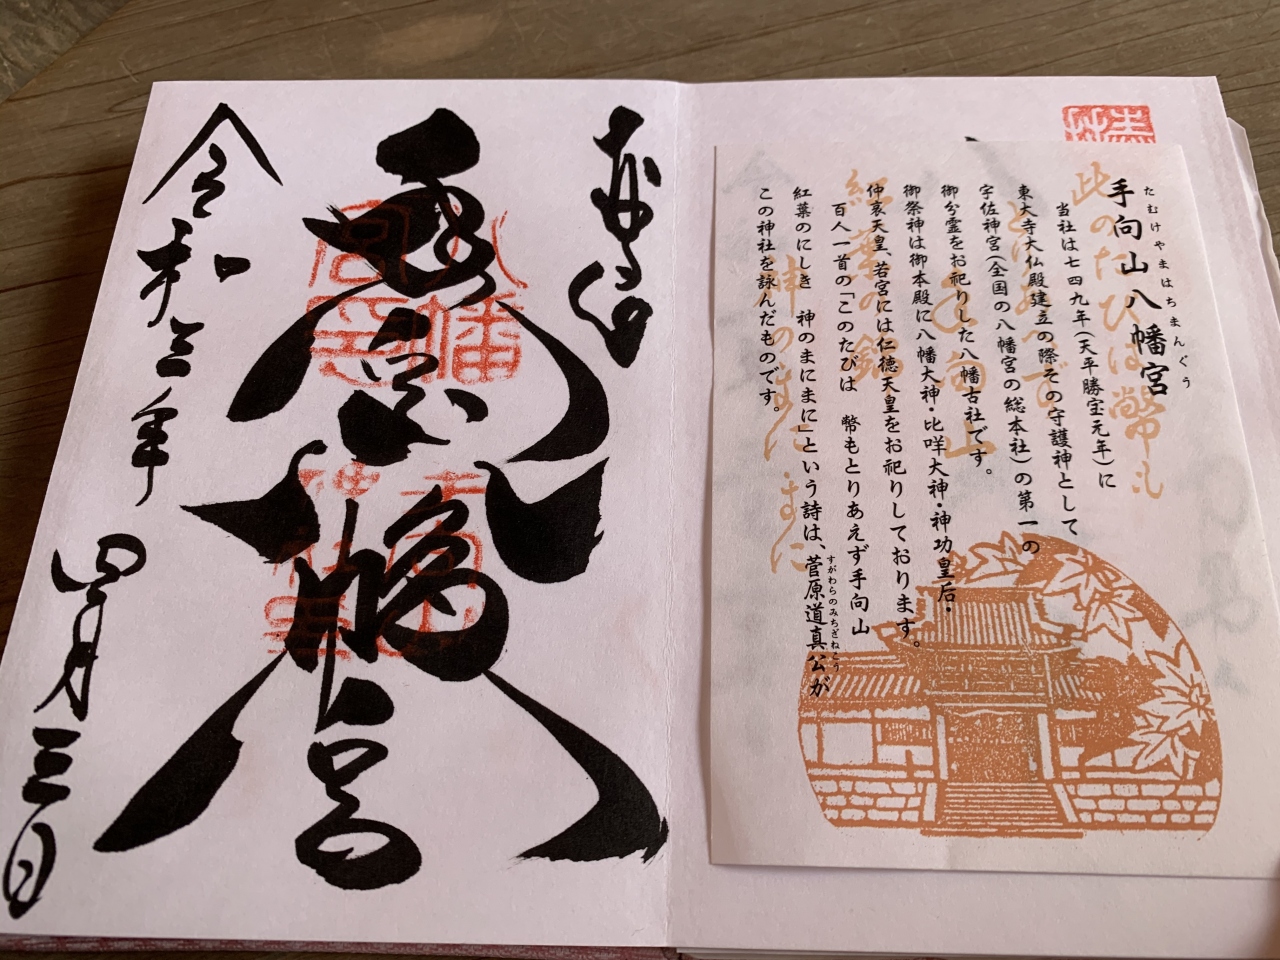 たむけやまはちまんぐう
手向山八幡宮
当社は七四九年(天平勝宝元年)に
東大寺大仏殿建立の際その守護神として
宇佐神宮(全国の八幡宮の総本社)の第一の
御分霊をお祀りした八幡古社です。
御祭神は御本殿に八幡大神・比咩大神・神功皇后・
仲哀天皇、若宮には仁徳天皇をお祀りしております。
百人一首の「このたびは 幣もとりあえず手向山
すがわらのみちざねこう
紅葉のにしき 神のまにまに」という詩は、菅原道真公が
この神社を詠んだものです。
此のたびは幣も
手向山
紅葉の錦
神のまにまに
奉拝
令和三年四月三日